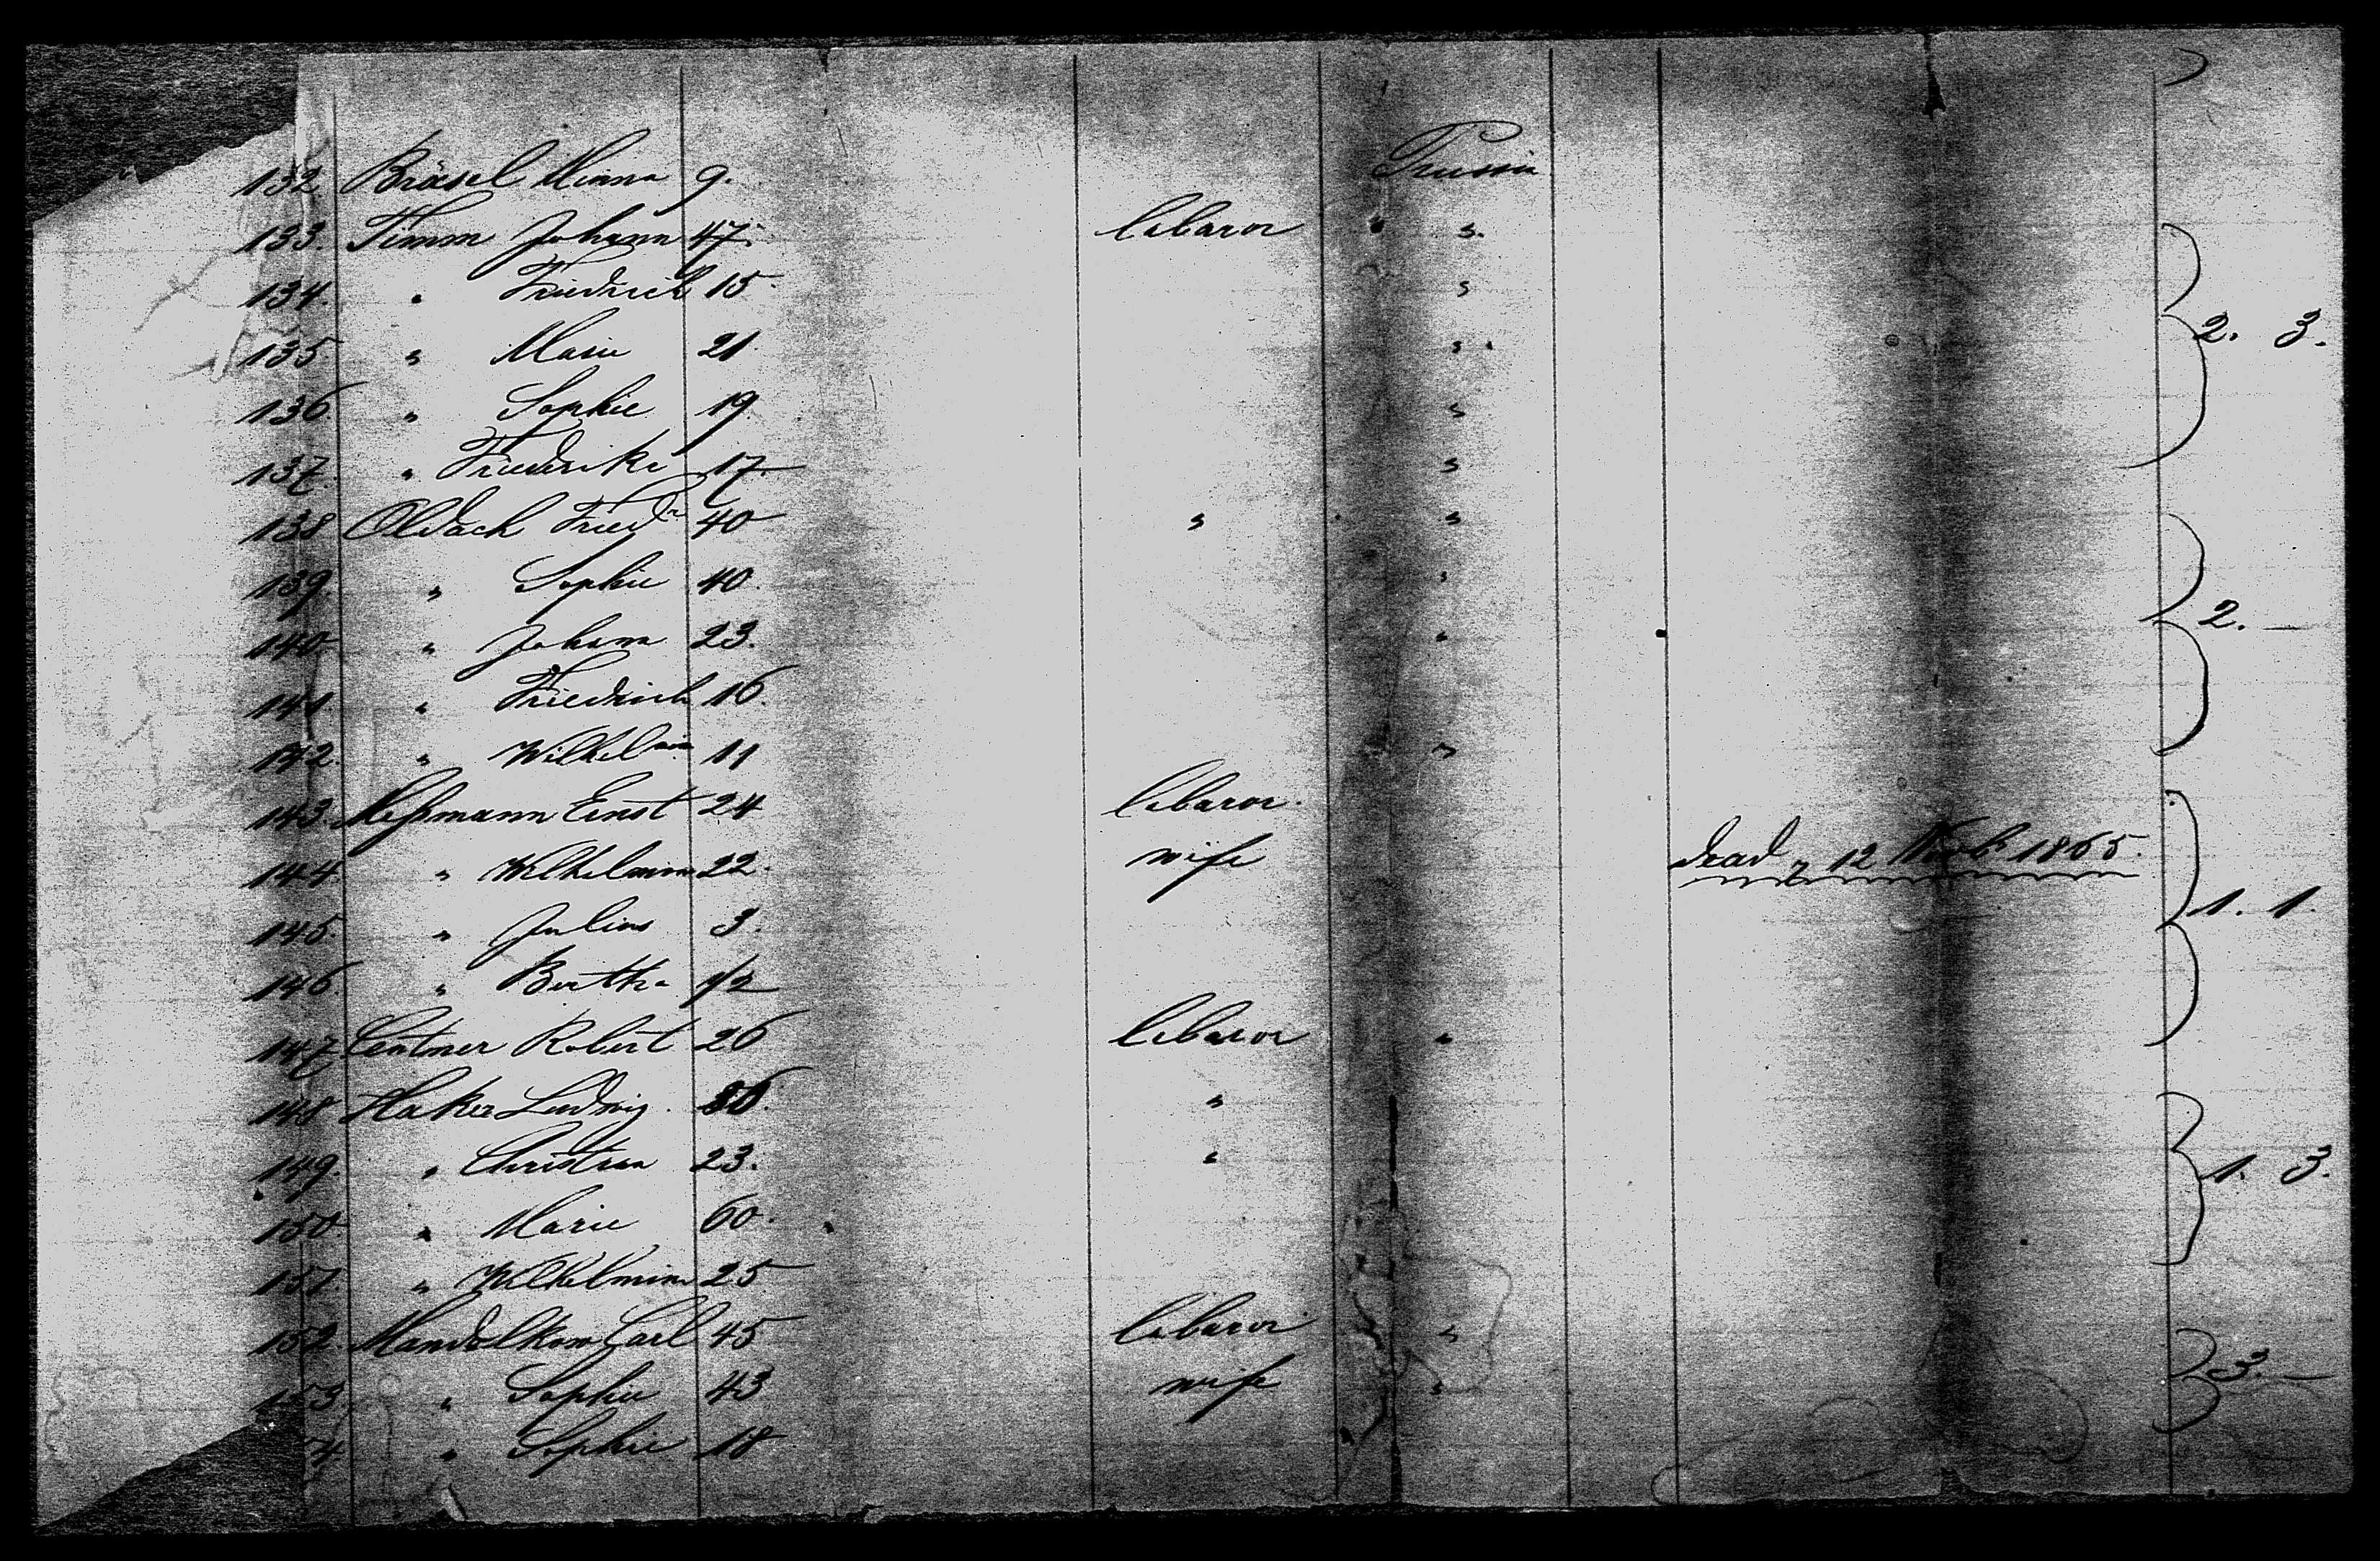 132 Bräsel Minna 9. Prussia
133. Timm Johann 47. labaror " "
134. " Friedrich 15 "
135 " Marie 21 " 2. 3.
136 " Sophie 19 "
137. " Friederike 17 "
138 Oldach Friedr 40 " "
139. " Sophie 40. "
140 " Johann 23. " 2. —
141 " Friedrich 16. "
142. " Wilhelmin 11 "
143. Meßmann Ernst 24 labaror.
144 " Wilhelmine 22. wife dead 12 Novb 1865.
145. " Julius 3. 1. 1.
146 " Bertha 1/2
147 Centner Robert 26 labaror "
148 Haker Ludwig. "
149. " Christian 23. " 1. 3.
150 " Marie 60.
151. " Wilhelmine 25
152. Carl 45 labaror "
153 " Sophie 43 wife " 3. —
4 " Sophie 18